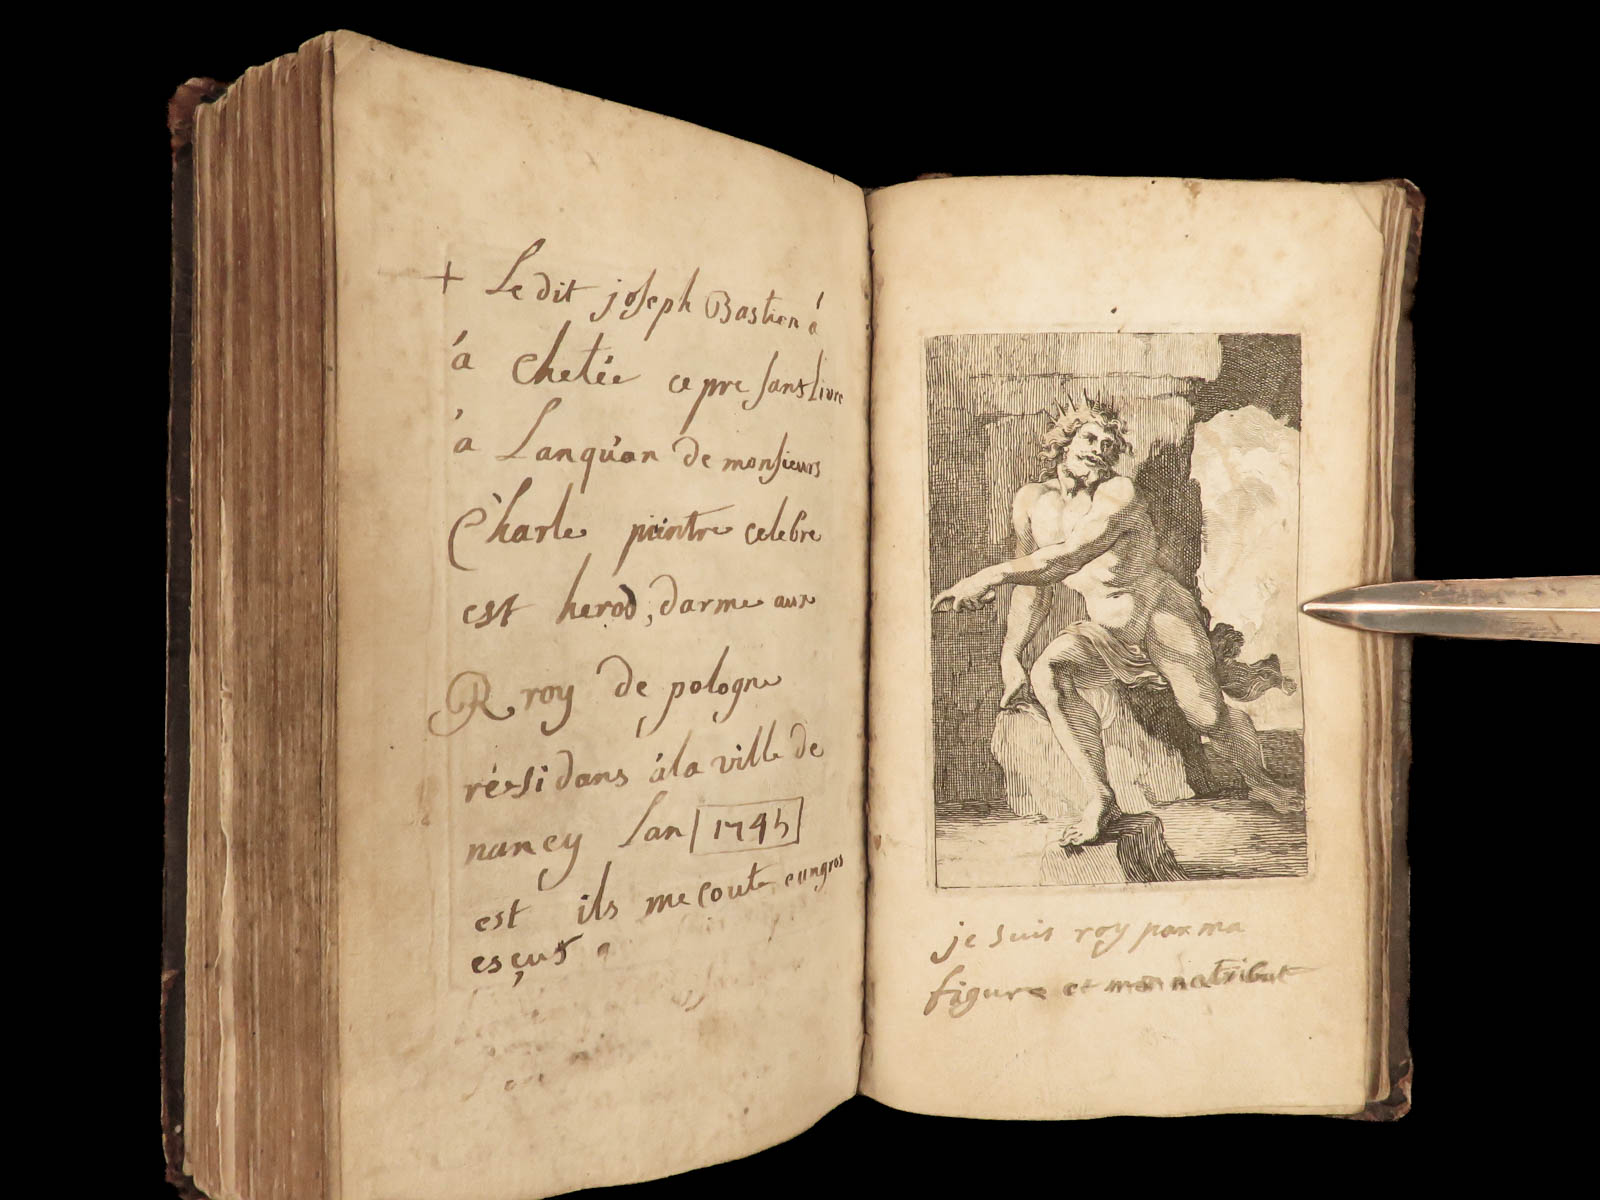 + Le dit joseph Bastien á
'a chetée ce pre sans Livre
'a Lanquan de monsieurs
Charle peintre celebre
est herod, darme aux
R roy de pologne
résidans á la ville de
nancy Lan 1745
est ils me coute eungros
esçus 9
je suis roy par ma
figure et mon natribut